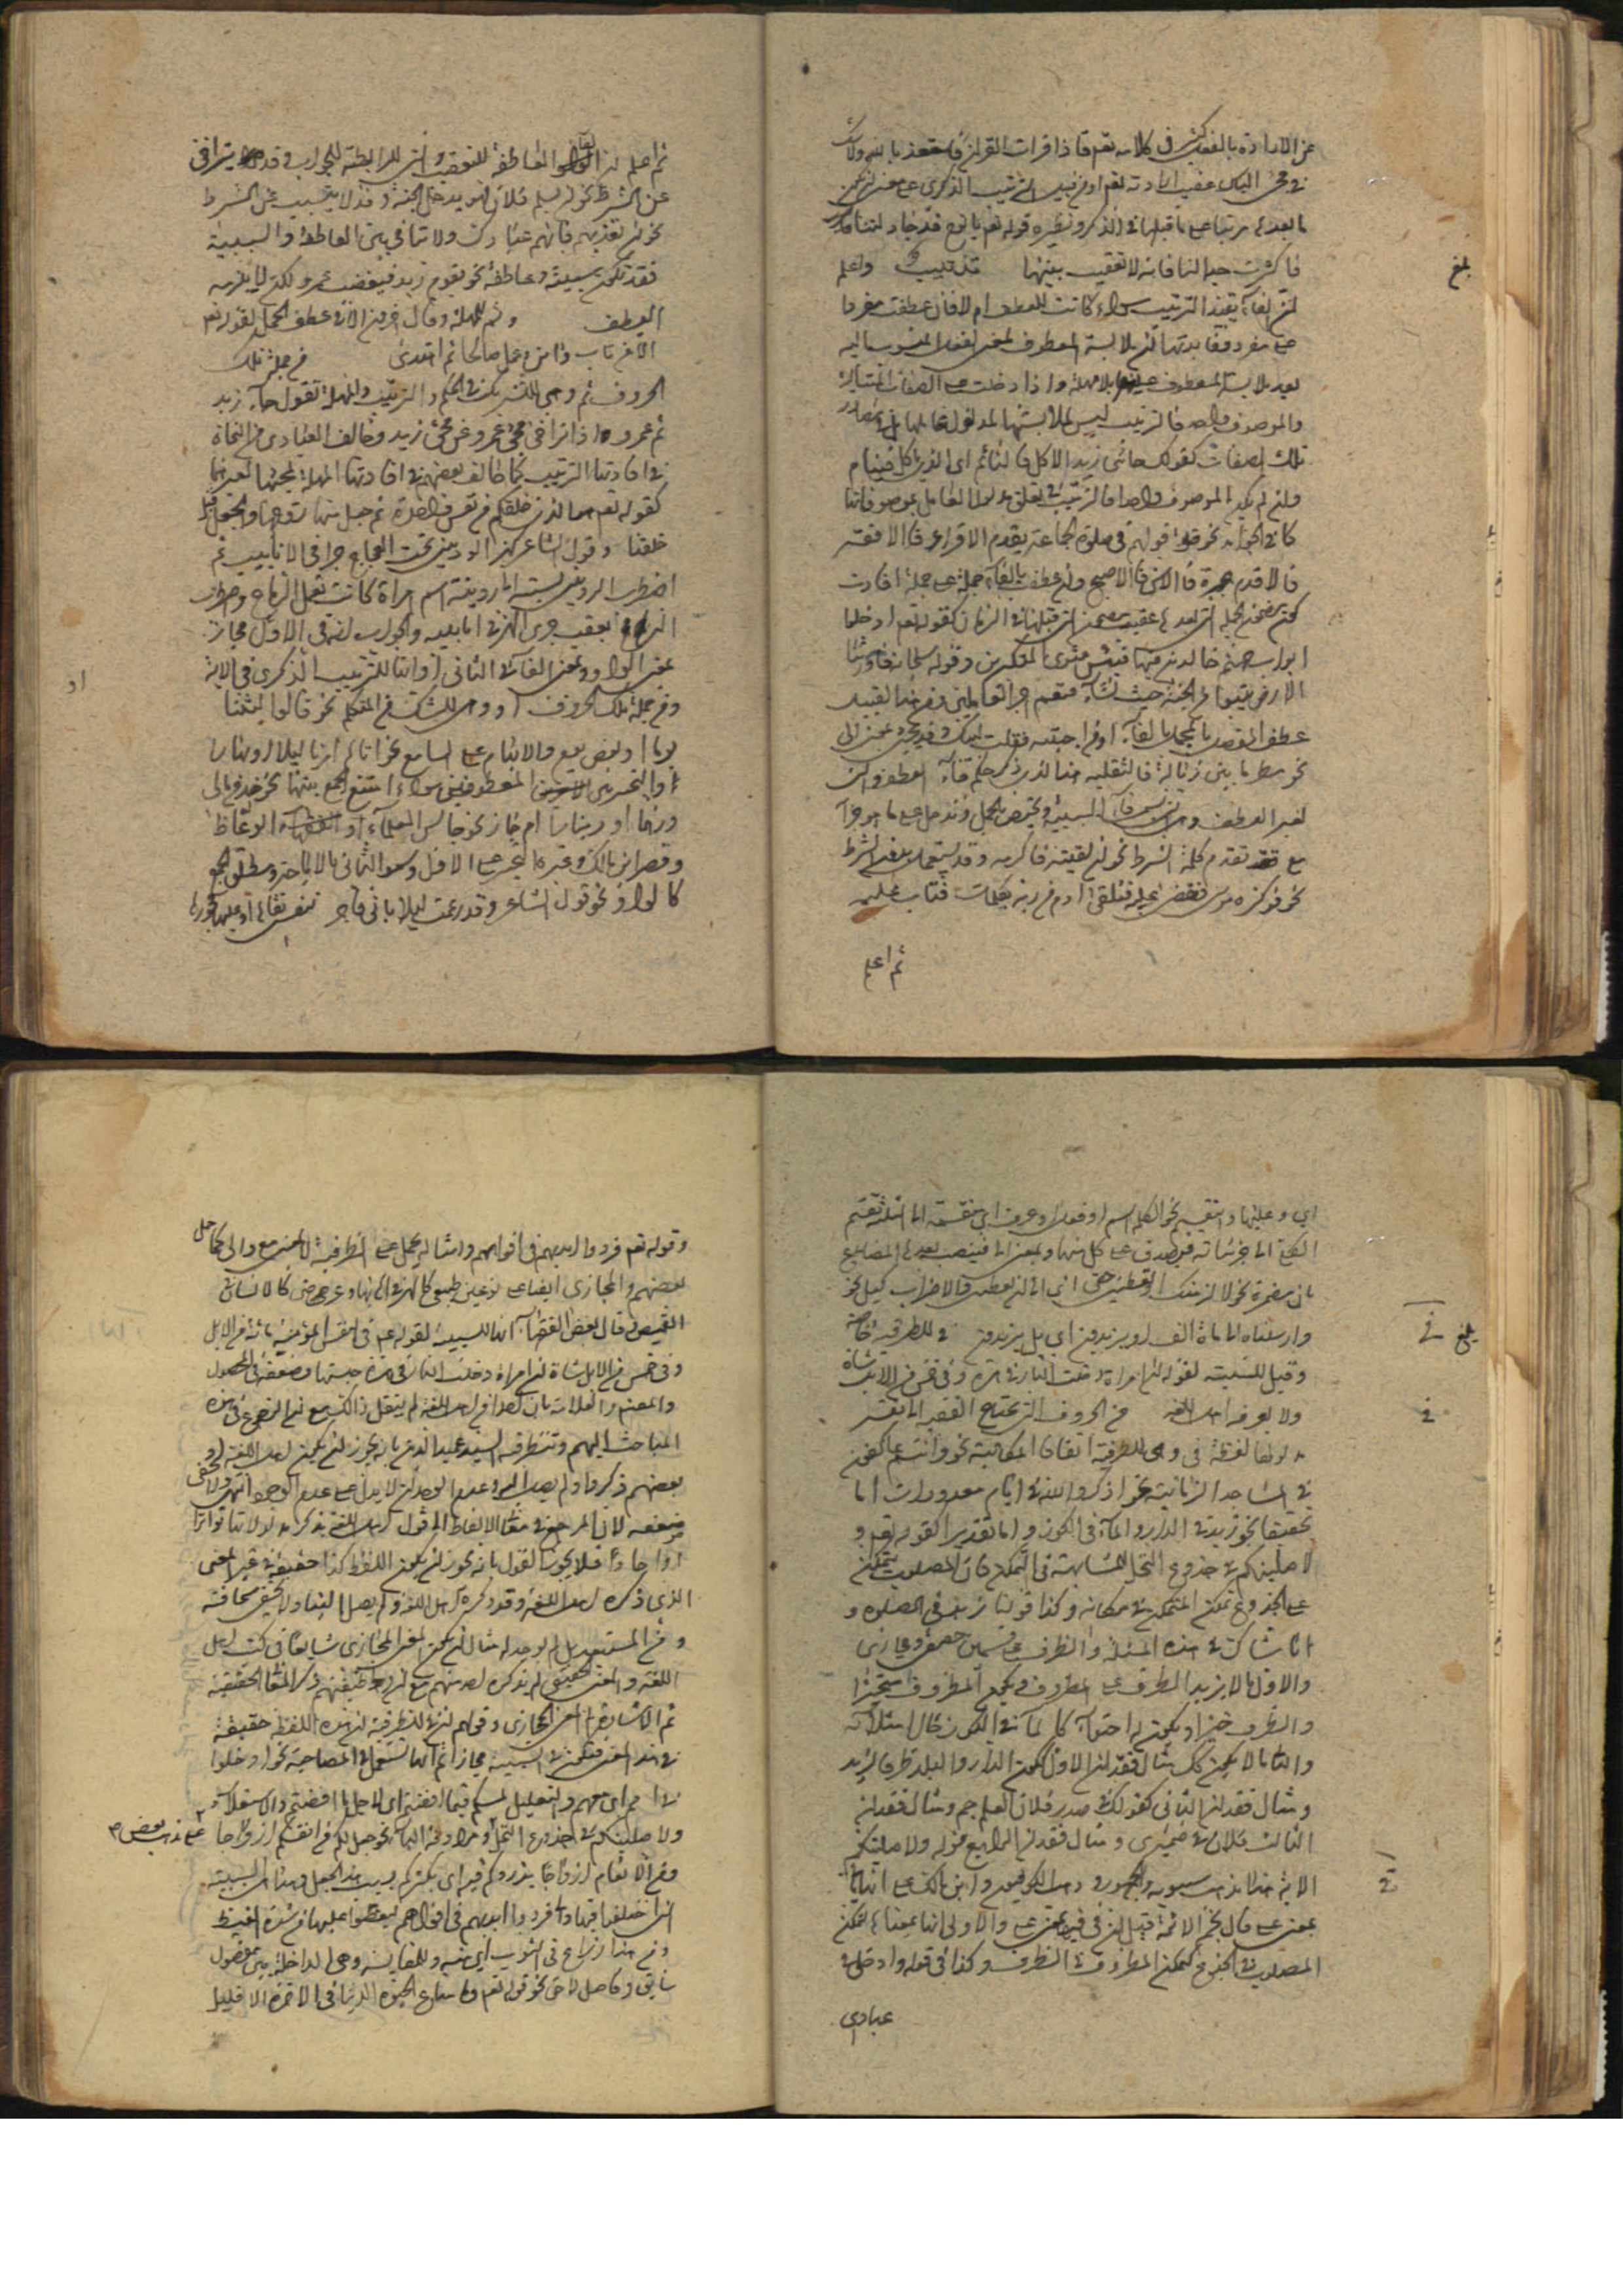 عن الارادة بالفعل كثير في كلامه تعم فاذا قرات القران فاستعذ بالله ولا شك
في مجئ البأس عقيب ارادته تعم او نفيد الترتيب الذكرى على معنى ان
ما بعدها مرتبا على ما قبلها في الذكر ونظيره قوله تعم يا نوح قد جادلتنا
فاكثرت جدالنا فانه لا تعقيب بينهما واعلم
بلغ
ان الفاء يفيد الترتيب سواء كانت للعطف ام لا فان عطفت مفردا
على مفرد ففايدتها ان ملابسة المعطوف لمعنى الفعل المنسوب اليه
بعد ملابسة المعطوف عليه بلا مهلة واذا دخلت على الصفات المتتالية
والموصوف واحد فالترتيب ليس لملابستها لمدلول عاملها بل في مصادر
تلك الصفات كقولك جائنى زيد الاكل فالنائم اى الذى ياكل فينام
وان لم يكن الموصوف واحدا فالترتيب في تعلق مدلول العامل بموصوفاتها
كما في الجوامد نحو قولهم في صلوة الجماعة يقدم الاقرا فالافقه
فالاقدم هجرة فالاسن فالاصبح وان عطفت بالفاء جملة على جملة افادت
كون مضمون الجملة التى بعدها عقيب مضمون التى قبلها في الزمان كقوله تعم ادخلوا
ابواب جهنم خالدين فيها فبئس مثوى المتكبرين وقوله سبحانه واورثنا
الارض نتبوأ من الجنة حيث نشاء فنعم اجر العاملين ومن هذا القبيل
عطف المفصل على المجمل بالفاء او فى اجبته فقلت لبيك وقد يجئ بمعنى الى
نحو مطرنا ما بين زبالة فالثعلبية هذا الذى ذكر حكم فاء العطف والتى
لغير العطف وهى التى تسمى فاء السببية ويختص بالجمل وتدخل على ما هو جزاء
مع تقدم كلمة الشرط نحو ان لقيته فاكرمه وقد يستعمل بدون الشرط
نحو فوكزه موسى فقضى عليه فتلقى ادم من ربه بكلمات فتاب عليه
ثم اعلم
ثم اعلم ان الفاء العاطفة للتعقيب والتى للرابطة للجواب قد يتراخى
عن الشرط نحو ان يسلم فلان فهو يدخل الجنة وقد لا يتسبب عن الشرط
نحو ان تعذبهم فانهم عبادك ولا تنافى بين العاطفة والسببية
فقد تكون سببية وعاطفة نحو يقوم زيد فيغضب عمرو ولكن لا يلزمه
العطف وثم للمهلة وقال لا في عطف الجمل لقوله تعم
الا من تاب وامن وعمل صالحا ثم اهتدى من جملة تلك
الحروف ثم وهى للتشريك في الحكم والترتيب والمهلة تقول جاء زيد
ثم عمرو اذا تراخى مجئ عمرو عن مجئ زيد وخالف العبادى من النحاة
في افادتها الترتيب كما خالف بعضهم في افادتها المهلة لمجيئها لغيرها
كقوله تعم هو الذى خلقكم من نفس واحدة ثم جعل منها زوجها والجعل قبل
خلقنا وقول الشاعر كهز الردينى تحت العجاج جرى في الانابيب ثم
اضطرب الردينى نسبة الى ردينة اسم امراة كانت تعمل الرماح واضطراب
الرمح يعقب جرى الهز في انابيبه والجواب انه في الاول مجاز
بمعنى الواو وبمعنى الفاء في الثانى او انها للترتيب الذكرى في الاية
او
ومن جملة تلك الحروف او وهى للشك من المتكلم نحو قالوا لبثنا
يوما او بعض يوم والابهام على السامع نحو اتاها امرنا ليلا او نهارا
او التخيير بين المعطوفين سواء امتنع الجمع بينهما نحو خذ من مالى
درهما او دينارا ام جاز نحو جالس العلماء او الوعاظ
وقصر ابن مالك وغيره التخيير على الاول وسموا الثانى بالاباحة ومطلق الجمع
كالواو نحو قول الشاعر وقد زعمت ليلى بانى فاجر لنفسى تقاها او عليها فجورها
اى وعليها والتقسيم نحو الكلمة اسم او فعل او حرف اى منقسمة الى الثلثة تقسيم
الكلى الى جزئياته فيصدق على كل منها وبمعنى الى فينصب بعدها المضارع
بان مضمرة نحو لالزمنك او تقضينى حقى اى الى ان تقضينى والاضراب كبل نحو
وارسلناه الى مائة الف او يزيدون اى بل يزيدون في للظرفية خاصة
بلغ في
وقيل للسببية لقوله ان امراة دخلت النار في هرة وفى خمس من الابل شاة
ولا يعرفه اهل اللغة من الحروف التى يحتاج الفقيه الى تفسير
في
مدلولها لفظة في وهى للظرفية اتفاقا المكانية نحو وانتم عاكفون
في المساجد الزمانية نحو اذكروا الله في ايام معدودات اما
تحقيقا نحو زيد في الدار والماء في الكوز واما تقديرا كقوله تعم و
لاصلبنكم في جذوع النخل لمشابهته في التمكن فان المصلوب يتمكن
على الجذوع تمكن المتمكن في مكانه وكذا قولنا زيد في الصلوة و
انا شاك في هذه المسئلة والظرف على قسمين حقيقى ومجازى
والاول ما لا يزيد الظرف على المظروف ويجمع المظروف متحيزا
والظرف حيزا ويكون له احتواء كالماء في الكوز حال امتلائه
والثانى ما لا يكون كك مثال فقدان الاول كون الدار والبلد ظرفا لزيد
ومثال فقدان الثانى كقولك في صدر فلان العلم جم ومثال فقدان
الثالث فلان في ضميرى ومثال فقدان الرابع قوله ولاصلبنكم
الاية هذا مذهب سيبويه والجمهور وذهب الكوفيون وابن مالك على انها
في
بمعنى على قال نجم الائمة قيل ان في فيه بمعنى على والاولى انها بمعناها لتمكن
المصلوب في الجذوع كتمكن المظروف في الظرف وكذا في قوله وادخلى في
عبادى
وقوله تعم فردوا ايديهم في افواههم وامثاله يحمل على الظرفية لا بمعنى مع والى كما حمل
بعضهم والمجازى ايضا على نوعين طبيعى كالمهرة في انها وعرضى كالانسان في
القميص وقال بعض الفقهاء انها للسببية لقوله عم في النفس المؤمنة مائة من الابل
وفى خمس من الابل شاة ان امراة دخلت النار في هرة حبستها وضعفه في المحصول
والمعتمد والعلامة بان احدا من اهل اللغة لم ينقل ذلك مع ان الرجوع في هذه
المباحث اليهم وتنظر فيه السيد عميد الدين بانه يجوز ان يكون اهل اللغة او
بعضهم ذكروا ولم يصل اليه وعدم الوجدان لا يدل على عدم الوجود انتهى ولا يخفى
ضعفه لان المرجع في معانى الالفاظ المنقول اهل اللغة بذكر مدلولاتها تواترا
او احادا فلا يجوز القول بانه يجوز ان يكون اللفظ كذا حقيقة في غير المعنى
الذى ذكره اهل اللغة وقد ذكره اهل اللغة ولم يصل الينا ولا يخفى سخافته
ومن المستبعد بل لم يوجد له مثال ان يكون المعنى المجازى شايعا في كتب اهل
اللغة والمعنى الحقيقى لم يذكره احد منهم مع ان وظيفتهم ذكر المعانى الحقيقية
ثم الا شارة الى المعنى المجازى وقولهم ان في للظرفية ان هذه اللفظة حقيقة
في هذا المعنى فتكون في السببية مجازا ثم انها تستعمل في المصاحبة نحو ادخلوا
في امم اى معهم والتعليل لمسكم فيما افضتم اى لاجل ما افضتم والاستعلاء
ولاصلبنكم في جذوع النخل ومرادفة الباء نحو جعل لكم من انفسكم ازواجا
على مذهب بعض
ومن الانعام ازواجا يذرؤكم فيه اى يكثركم بسبب هذا الجعل وهذا هو السببية
التى اختلف فيها وانه فردوا ايديهم في افواههم ليعضوا عليها من شدة الغيظ
ومن هذا ذراع في الثوب اى منه وللمقايسة وهى الداخلة بين مفضول
سابق وفاضل لاحق نحو قوله تعم فما متاع الحيوة الدنيا في الاخرة الا قليل